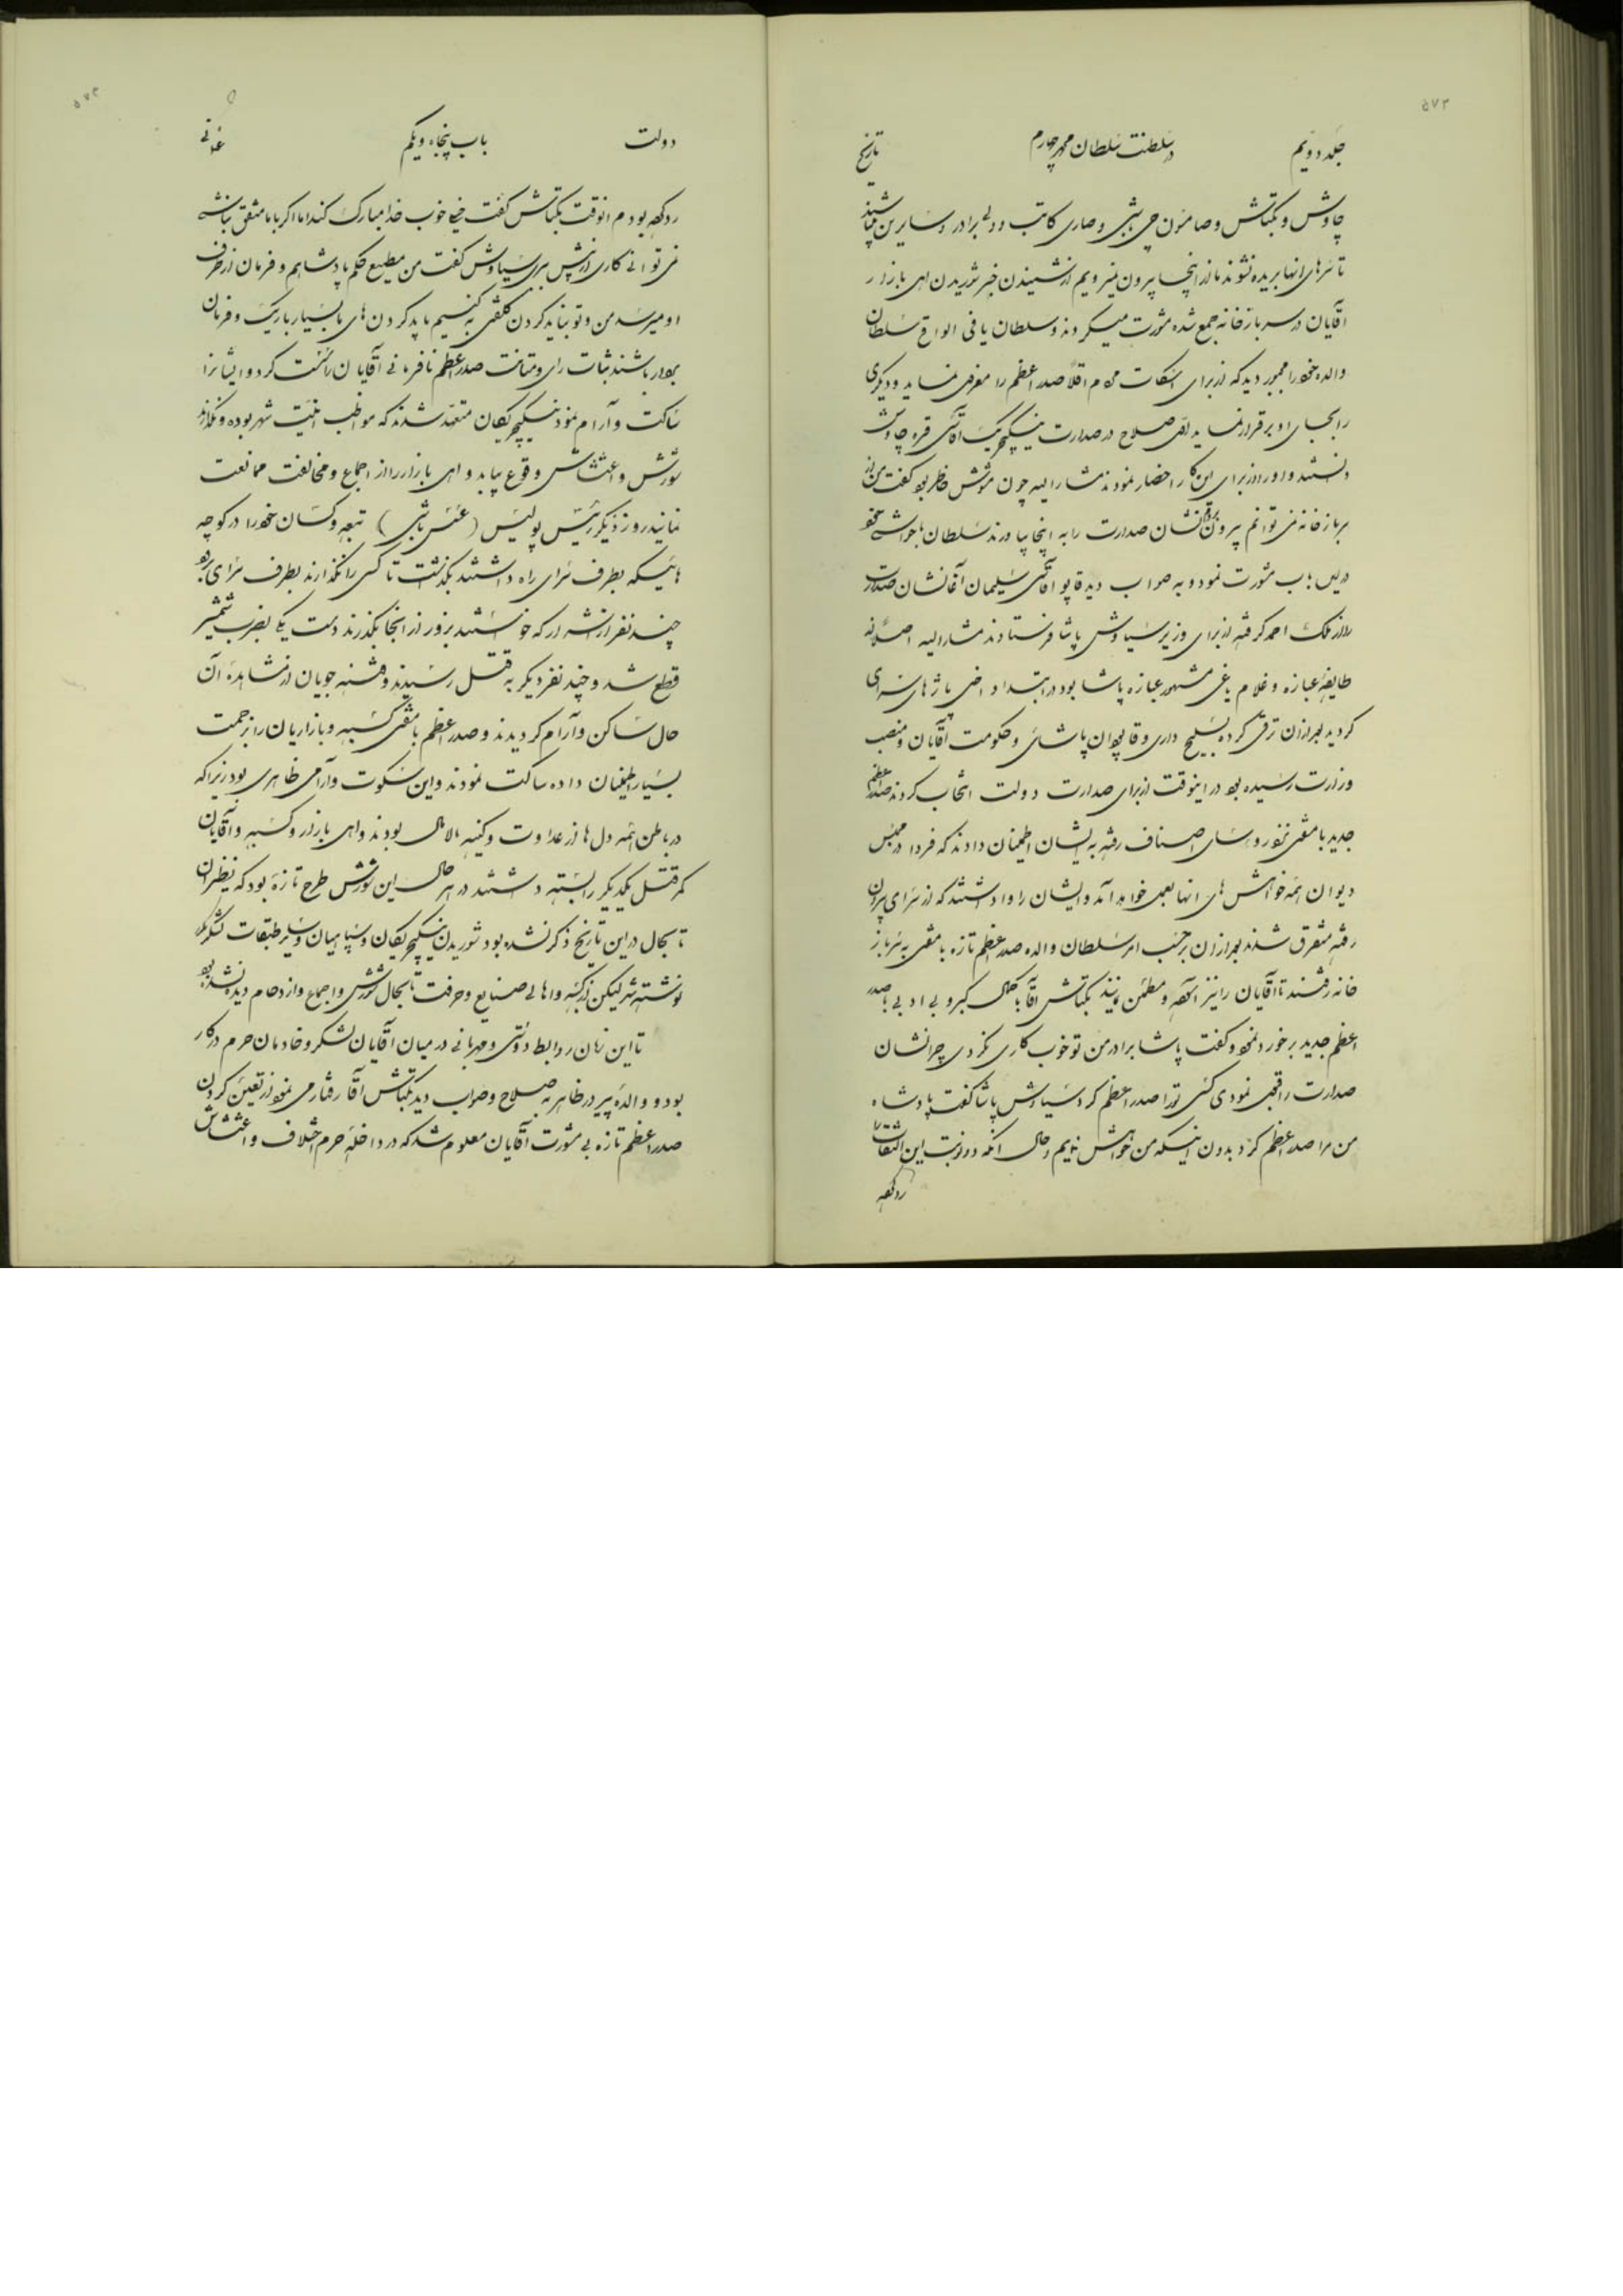 ۵۷۲
جلد دویم در سلطنت سلطان محمد چهارم تاریخ
چاوش و بکتاش و صامسون چی باشی و صاری کاتب و دلی برادر و سایرین میباشند
تا سرهای انها بریده نشوند ما از اینجا بیرون نمیرویم از شنیدن خبر شوریدن اهل بازار
آقایان در سرباز خانه جمع شده مشورت میکردند و سلطان یافی الواقع سلطان
والده خود را مجبور دید که از برای اسکات مردم اقلاً صدر اعظم را معزول نماید و دیگری
را بجای او برقرار نماید اول صلاح در صدارت ینکیچریک آقاسی قره چاوش
دانستند و او را از برای این کار احضار نمودند مشارالیه چون مشوش خاطر بود گفت من از
سرباز خانه نمی توانم بیرون رفت نشان صدارت را به اینجا بیاورند سلطان با خواص خود
در این باب مشورت نمود و به صواب دید قاپو آقاسی سلیمان آغا نشان صدارت
را از ملک احمد گرفته از برای وزیر سیاوش پاشا فرستادند مشارالیه اصلاً از
طایفه عبازه و غلام یاغی مشهور عبازه پاشا بود در ابتدا داخل پاژهای سرای
گردید بعد از آن ترقی کرده بسلیح داری و قاپودان پاشائی و حکومت آقایان و منصب
وزارت رسیده بود در اینوقت از برای صدارت دولت انتخاب کردند صدر اعظم
جدید با مفتی نزد رؤسای اصناف رفته به ایشان اطمینان دادند که فردا در مجلس
دیوان همه خواهش های انها بعمل خواهد آمد و ایشان را واداشتند که از سرای بیرون
رفته متفرق شدند بعد از آن بر حسب امر سلطان والده صدر اعظم تازه با مفتی به سرباز
خانه رفتند تا آقایان را نیز آگاه و مطمئن نمایند بکتاش آقا با کمال کبر و بی ادبی با صدر
اعظم جدید برخورد نمود و گفت پاشا برادر من تو خوب کاری نکردی چرا نشان
صدارت را قبول نمودی کی تو را صدر اعظم کرد سیاوش پاشا گفت پادشاه
من مرا صدر اعظم کرد بدون اینکه من خواهش نمایم و حال آنکه دو نوبت این التفات را
رد کرده
۵۷۳
دولت باب پنجاه و یکم عثمانی
رد کرده بودم انوقت بکتاش گفت خیلی خوب خدا مبارک کند اما اگر با ما متفق نباشی
نمی توانی کاری از پیش ببری سیاوش گفت من مطیع حکم پادشاهم و فرمان از طرف
او میرسد من و تو نباید گردن کلفتی به کنیم باید گردن های ما بسیار باریک و فرمان
بردار باشند ثبات رای و متانت صدر اعظم نافرمانی آقایان را سست کرد و ایشان را
ساکت و آرام نمود ینکیچریکان متعهد شدند که مواظب امنیت شهر بوده و نگذارند
شورش و اغتشاش وقوع بیابد و اهل بازار را از اجماع و مخالفت ممانعت
نمایند روز دیگر رئیس پولیس (عسس باشی) تبعه و کسان خود را در کوچه
هائیکه بطرف سرای راه داشتند بگذاشت تا کسی را نگذارند بطرف سرای برود
چند نفر از تبعه را که خواستند بزور از انجا بگذرند دست یکی بضرب شمشیر
قطع شد و چند نفر دیگر به قتل رسیدند و فتنه جویان از مشاهده آن
حال ساکن و آرام گردیدند و صدر اعظم با مفتی کسبه و بازاریان را بزحمت
بسیار اطمینان داده ساکت نمودند و این سکوت و آرامی ظاهری بود زیرا که
در باطن همه دل ها از عداوت و کینه مالامال بودند و اهل بازار و کسبه و آقایان
کمر قتل یکدیگر را بسته داشتند در هر حال این شورش طرح تازه بود که نظیر آن
تا بحال در این تاریخ ذکر نشده بود شوریدن ینکیچریکان و سپاهیان و سایر طبقات لشگر مکرر
نوشته شد لیکن از کسبه و اهالی صنایع و حرفت تا بحال شورش و اجماع و ازدحام دیده نشده بود
تا این زمان روابط دوستی و مهربانی در میان آقایان لشکر و خادمان حرم در کار
بود و والده پیر در ظاهر به صلاح و صواب دید بکتاش آقا رفتار می نمود از تعیین کردن
صدر اعظم تازه بی مشورت آقایان معلوم شد که در داخله حرم اختلاف و اغتشاش